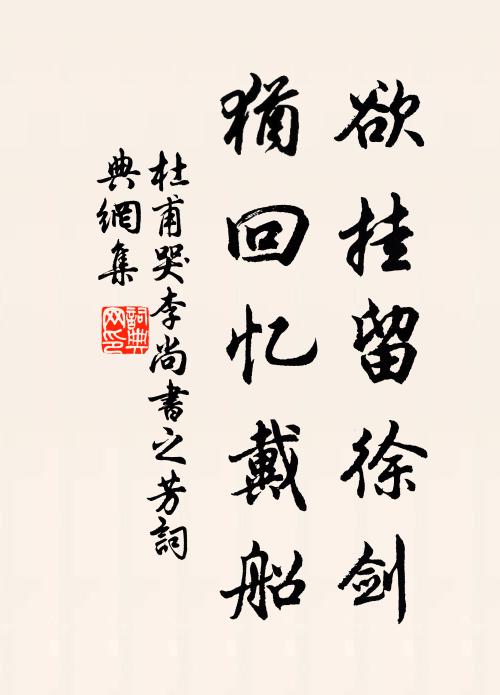 欲挂留徐剑
犹回忆戴船
杜甫哭李尚书之芳词
典网集
词典
网印